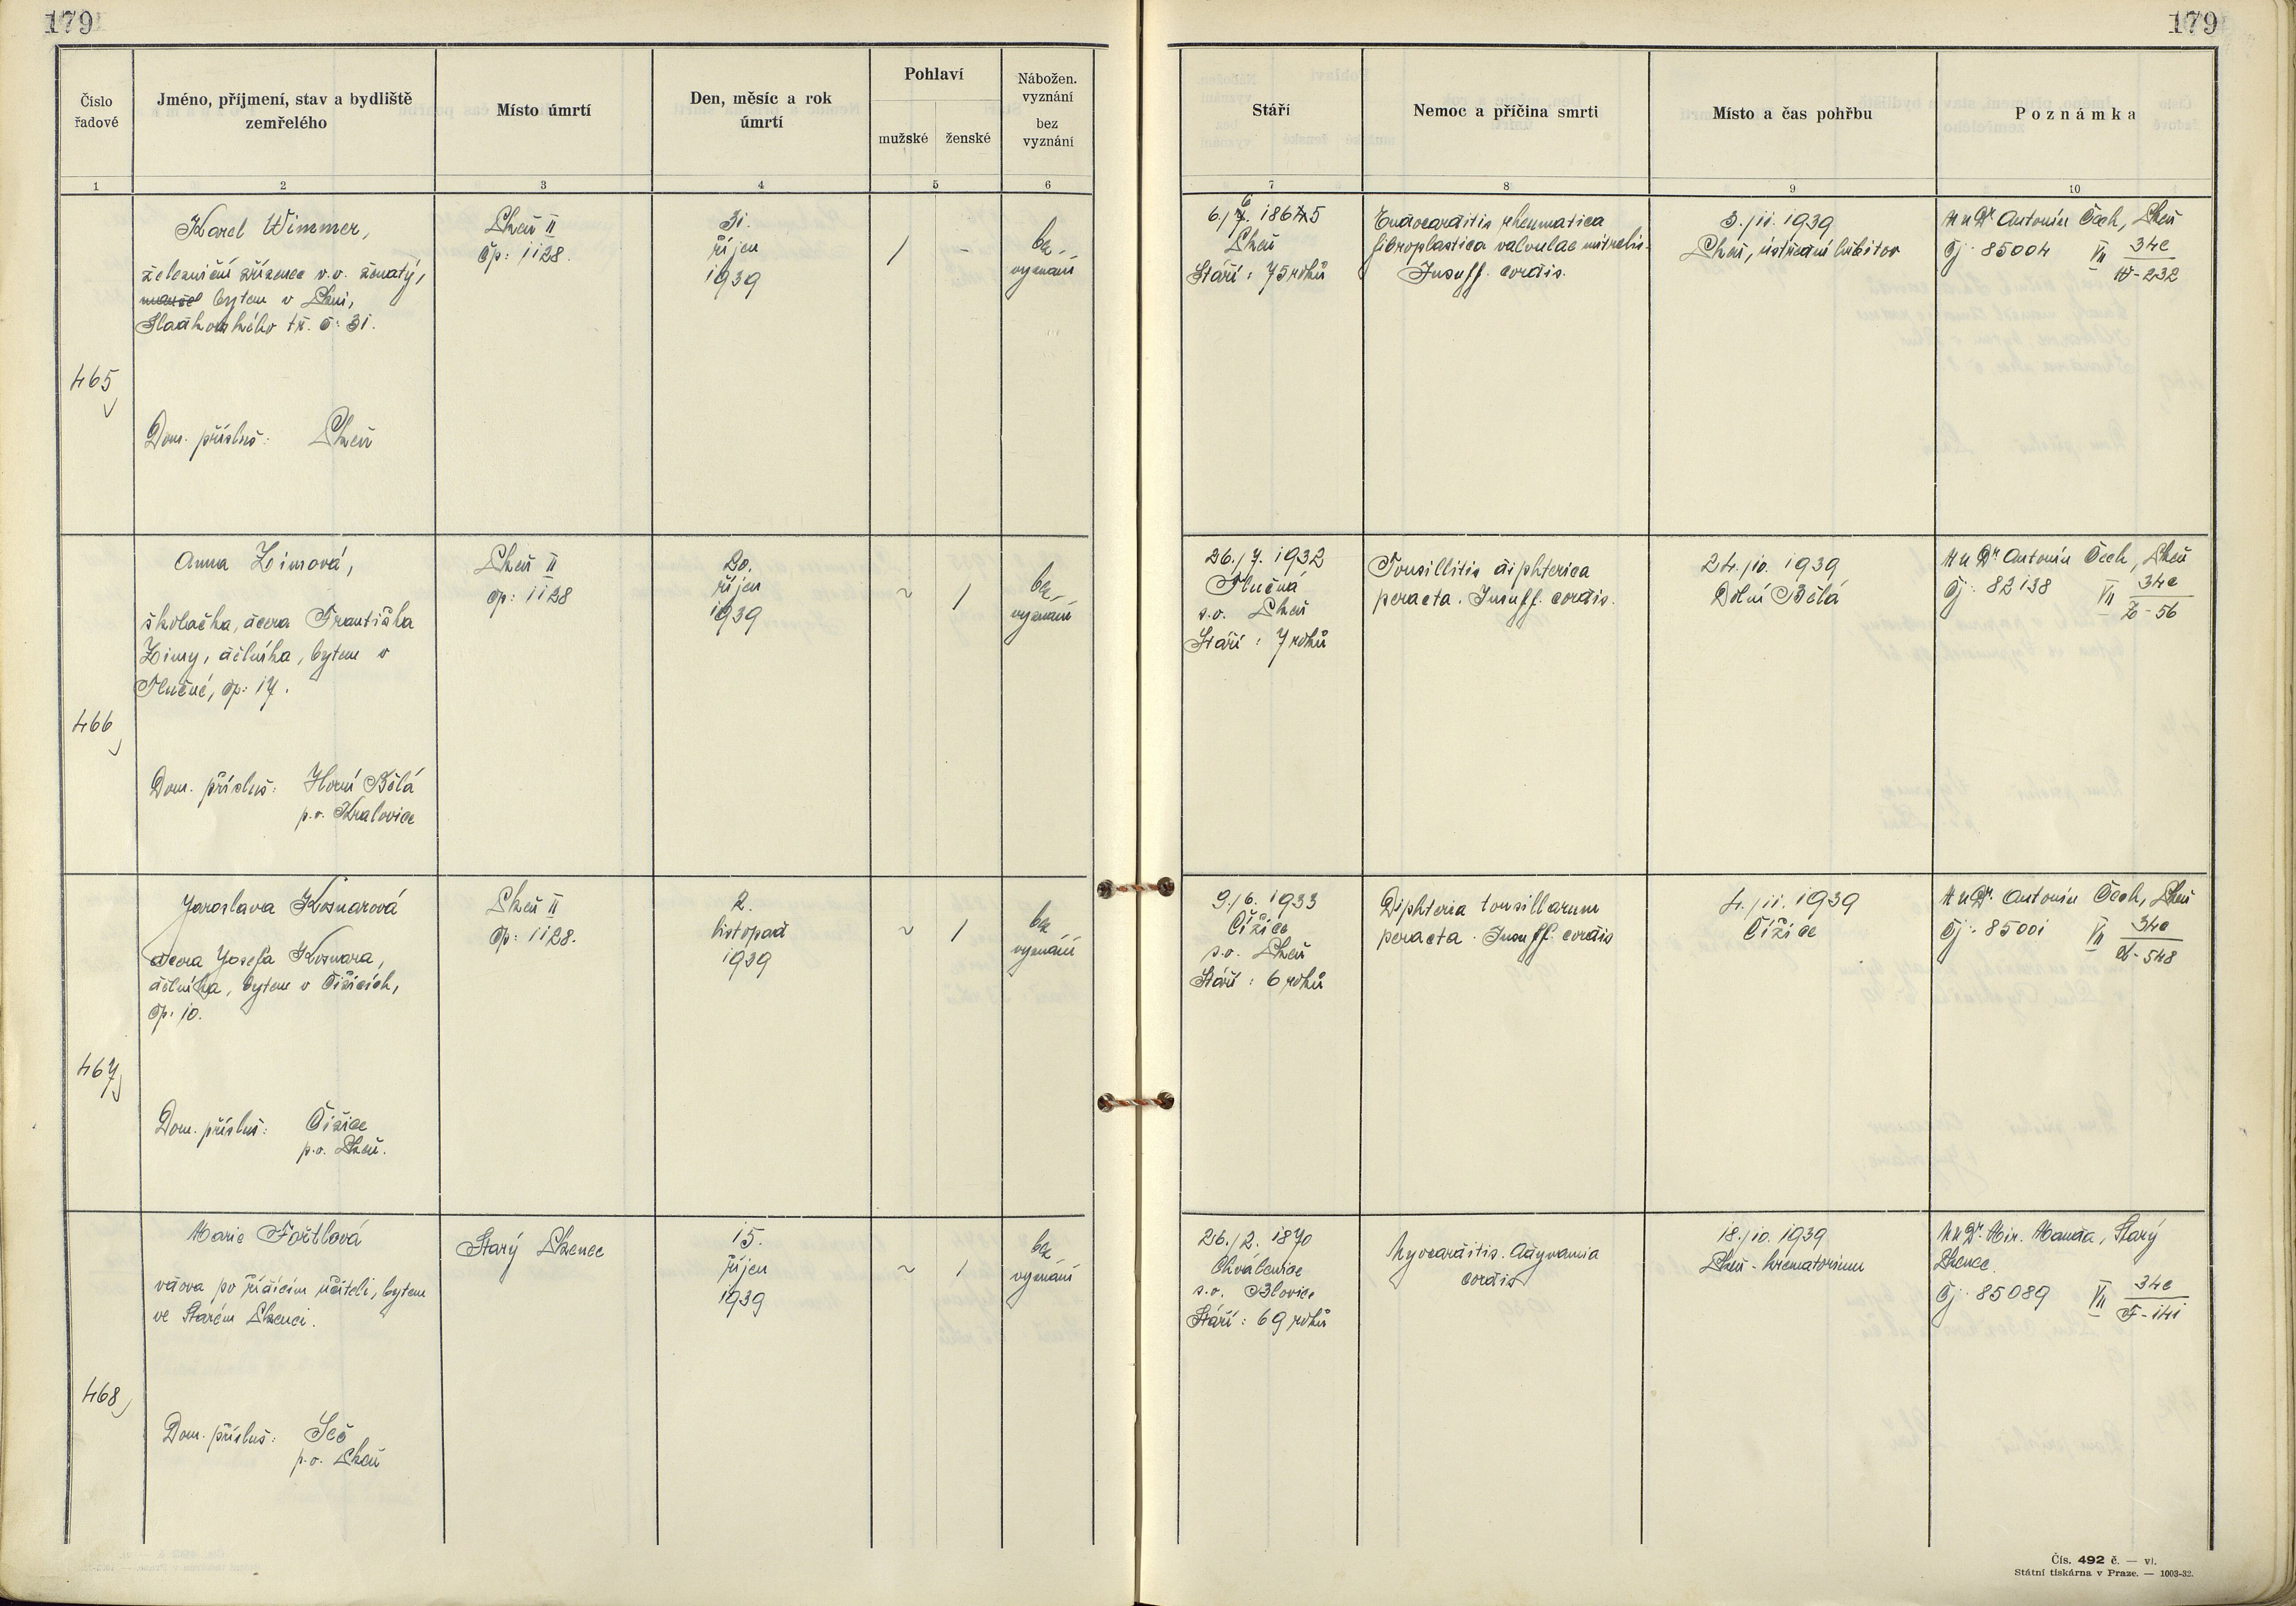 179
179
Číslo řadové
Jméno, příjmení, stav a bydliště zemřelého
Místo úmrtí
Den, měsíc a rok úmrtí
Pohlaví
mužské
ženské
Nábožen. vyznání
bez vyznání
Stáří
Nemoc a příčina smrti
Místo a čas pohřbu
Poznámka
1
2
3
4
5
6
7
8
9
10
465
Karel Wimmer,
železniční zřízenec v.v. ženatý,
bytem v Plzni,
Sladkovského tř. č: 31.
Dom. přísluš: Plzeň
Plzeň II
čp: 1128.
31.
říjen
1939
/
-
bez
vyznání
6./6. 1865
Plzeň
Stáří: 75 roků
Endocarditis rheumatica
fibroplastica valvulae mitralis.
Insuff. cordis.
3./11. 1939
Plzeň, ústřední hřbitov
MuDr Antonín Čech, Plzeň
Čj: 85004 VII 34e
W-232
466
Anna Zimová,
školačka, dcera Františka
Zimy, dělníka, bytem v
Tlučné, čp: 17.
Dom. přísluš: Horní Bělá
p.o. Kralovice
Plzeň II
čp: 1128
20.
říjen
1939
~
/
bez
vyznání
26./7. 1932
Tlučná
s.o. Plzeň
Stáří: 7 roků
Tonsillitis diphterica
peracta. Insuff. cordis.
24./10. 1939
Dolní Bělá
MuDr Antonín Čech, Plzeň
Čj: 82138 VII 34e
Z-56
467
Jaroslava Kosnarová
dcera Josefa Kosnara,
dělníka, bytem v Čižicích,
čp: 10.
Dom. přísluš: Čižice
p.o. Plzeň.
Plzeň II
čp: 1128.
2.
listopad
1939
~
/
bez
vyznání
9./6. 1933
Čižice
s.o. Plzeň
Stáří: 6 roků
Diphteria tonsillarum
peracta. Insuff. cordis
4./11. 1939
Čižice
MuDr. Antonín Čech, Plzeň
Čj: 85001 VII 34e
K-548
468
Marie Fořtlová
vdova po řídícím učiteli, bytem
ve Starém Plzenci.
Dom. přísluš: Seč
p.o. Plzeň
Starý Plzenec
15.
říjen
1939
~
/
bez
vyznání
26./2. 1870
Chválenice
s.o. Blovice
Stáří: 69 roků
Myocarditis. Adynamia
cordis
18./10. 1939
Plzeň - krematorium
MuDr. Mir. Handa, Starý
Plzenec.
Čj: 85089 VII 34e
F-141
Čís. 492 č. — vl.
Státní tiskárna v Praze. — 1003-32.